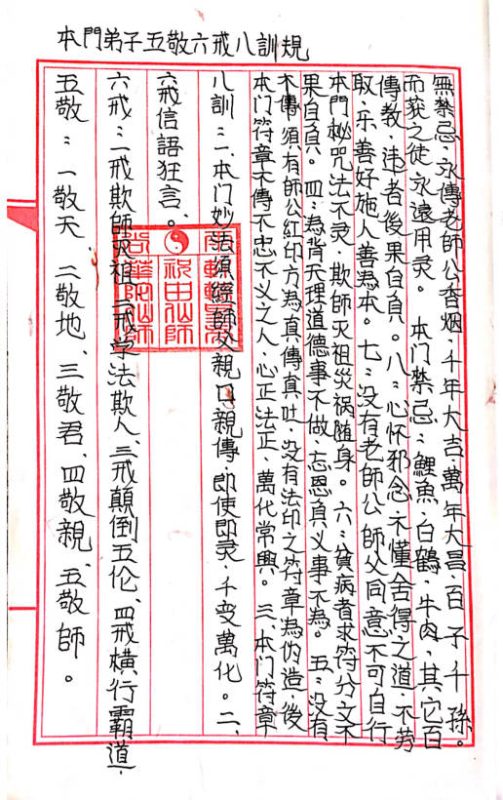 本門弟子五敬六戒八訓規
五敬：一敬天、二敬地、三敬君、四敬親、五敬師。
六戒：一戒欺師灭祖、二戒学法欺人、三戒顛倒五伦、四戒橫行霸道、
六戒信語狂言、。
八訓：一、本门妙法须經師父親口親傳、即使即灵、千变萬化。二、
本门符章不傳不忠不义之人、心正法正、萬化常興。三、本门符章
不傳、須有師公紅印方為真傳真吐、没有法印之符章為伪造、後
果自負。四：為背天理道德事不做、忘恩負义事不為。五：没有
本門秘咒法不灵、欺師灭祖災祸随身。六：貧病者求符分文不
取、乐善好施人善為本。七：没有老師公師父同意不可自行
傳教、违者後果自負。八：心怀邪念、不懂舍得之道、不劳
而获之徒永遠用灵。本门禁忌：鯉魚、白鶴、牛肉、其它百
無禁忌、永傳老師公香烟、千年大吉、萬年大昌、百子千孫。
祝由仙師